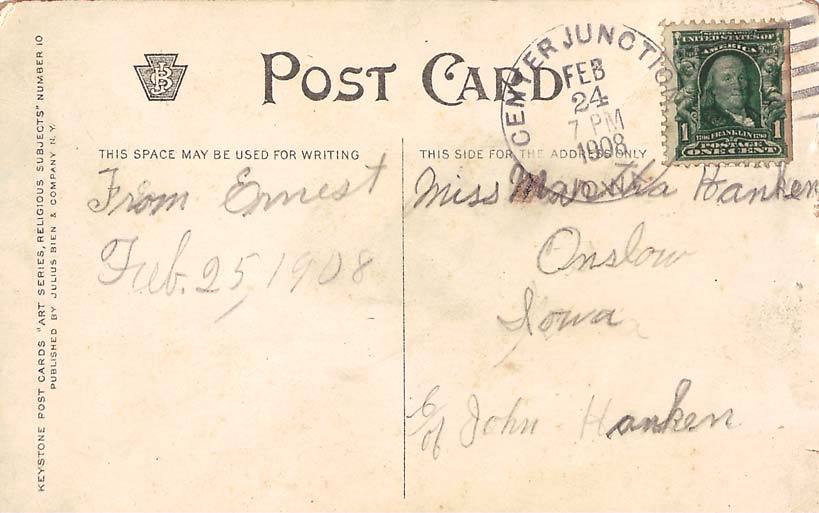 KEYSTONE POST CARDS "ART SERIES, RELIGIOUS SUBJECTS" NUMBER 10
PUBLISHED BY JULIUS BIEN & COMPANY N.Y.
POST CARD
THIS SPACE MAY BE USED FOR WRITING
From Ernest
Feb. 25, 1908
CENTER JUNCTION
FEB
24
7 PM
1908
IOWA
SERIES 1902
UNITED STATES OF
AMERICA
1 1706 FRANKLIN 1790 1
POSTAGE
ONE CENT
THIS SIDE FOR THE ADDRESS ONLY
Miss Martha Hanken
Onslow
Iowa
c/of John Hanken